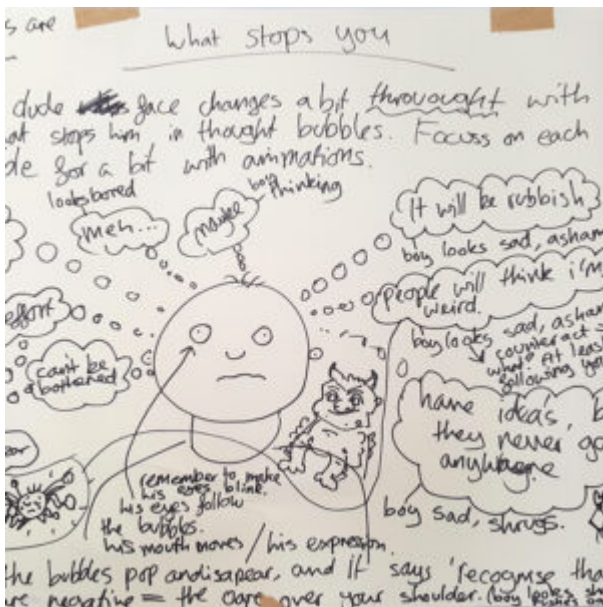 s are
What stops you
dude face changes a bit throuought with
at stops him in thought bubbles. Focuss on each
de for a bit with animations.
looks bored
meh...
boy thinking
maybe
It will be rubbish
boy looks sad, asham
people will think i'm
weird.
boy looks sad, asham
counteract
what? At leas
following yo
effort
can't be
bothered
have ideas, b
they never go
anywhere
boy sad, shrugs.
remember to make
his eyes blink.
his eyes follow
the bubbles.
his mouth moves / his expression.
the bubbles pop and isapear, and it says 'recognise tha
are negative = the over your shoulder.